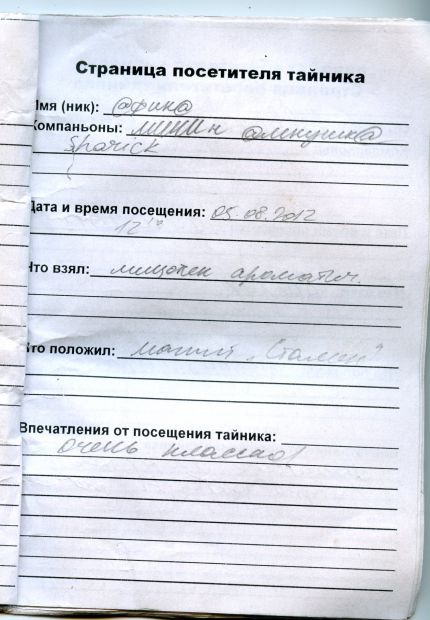 Страница посетителя тайника
Имя (ник): Афина
Компаньоны: минин аленушка
Sharick
Дата и время посещения: 05.08.2012
12¹⁰
Что взял: мешочек ароматич.
Что положил: магнит „Сталин"
Впечатления от посещения тайника:
очень классно!